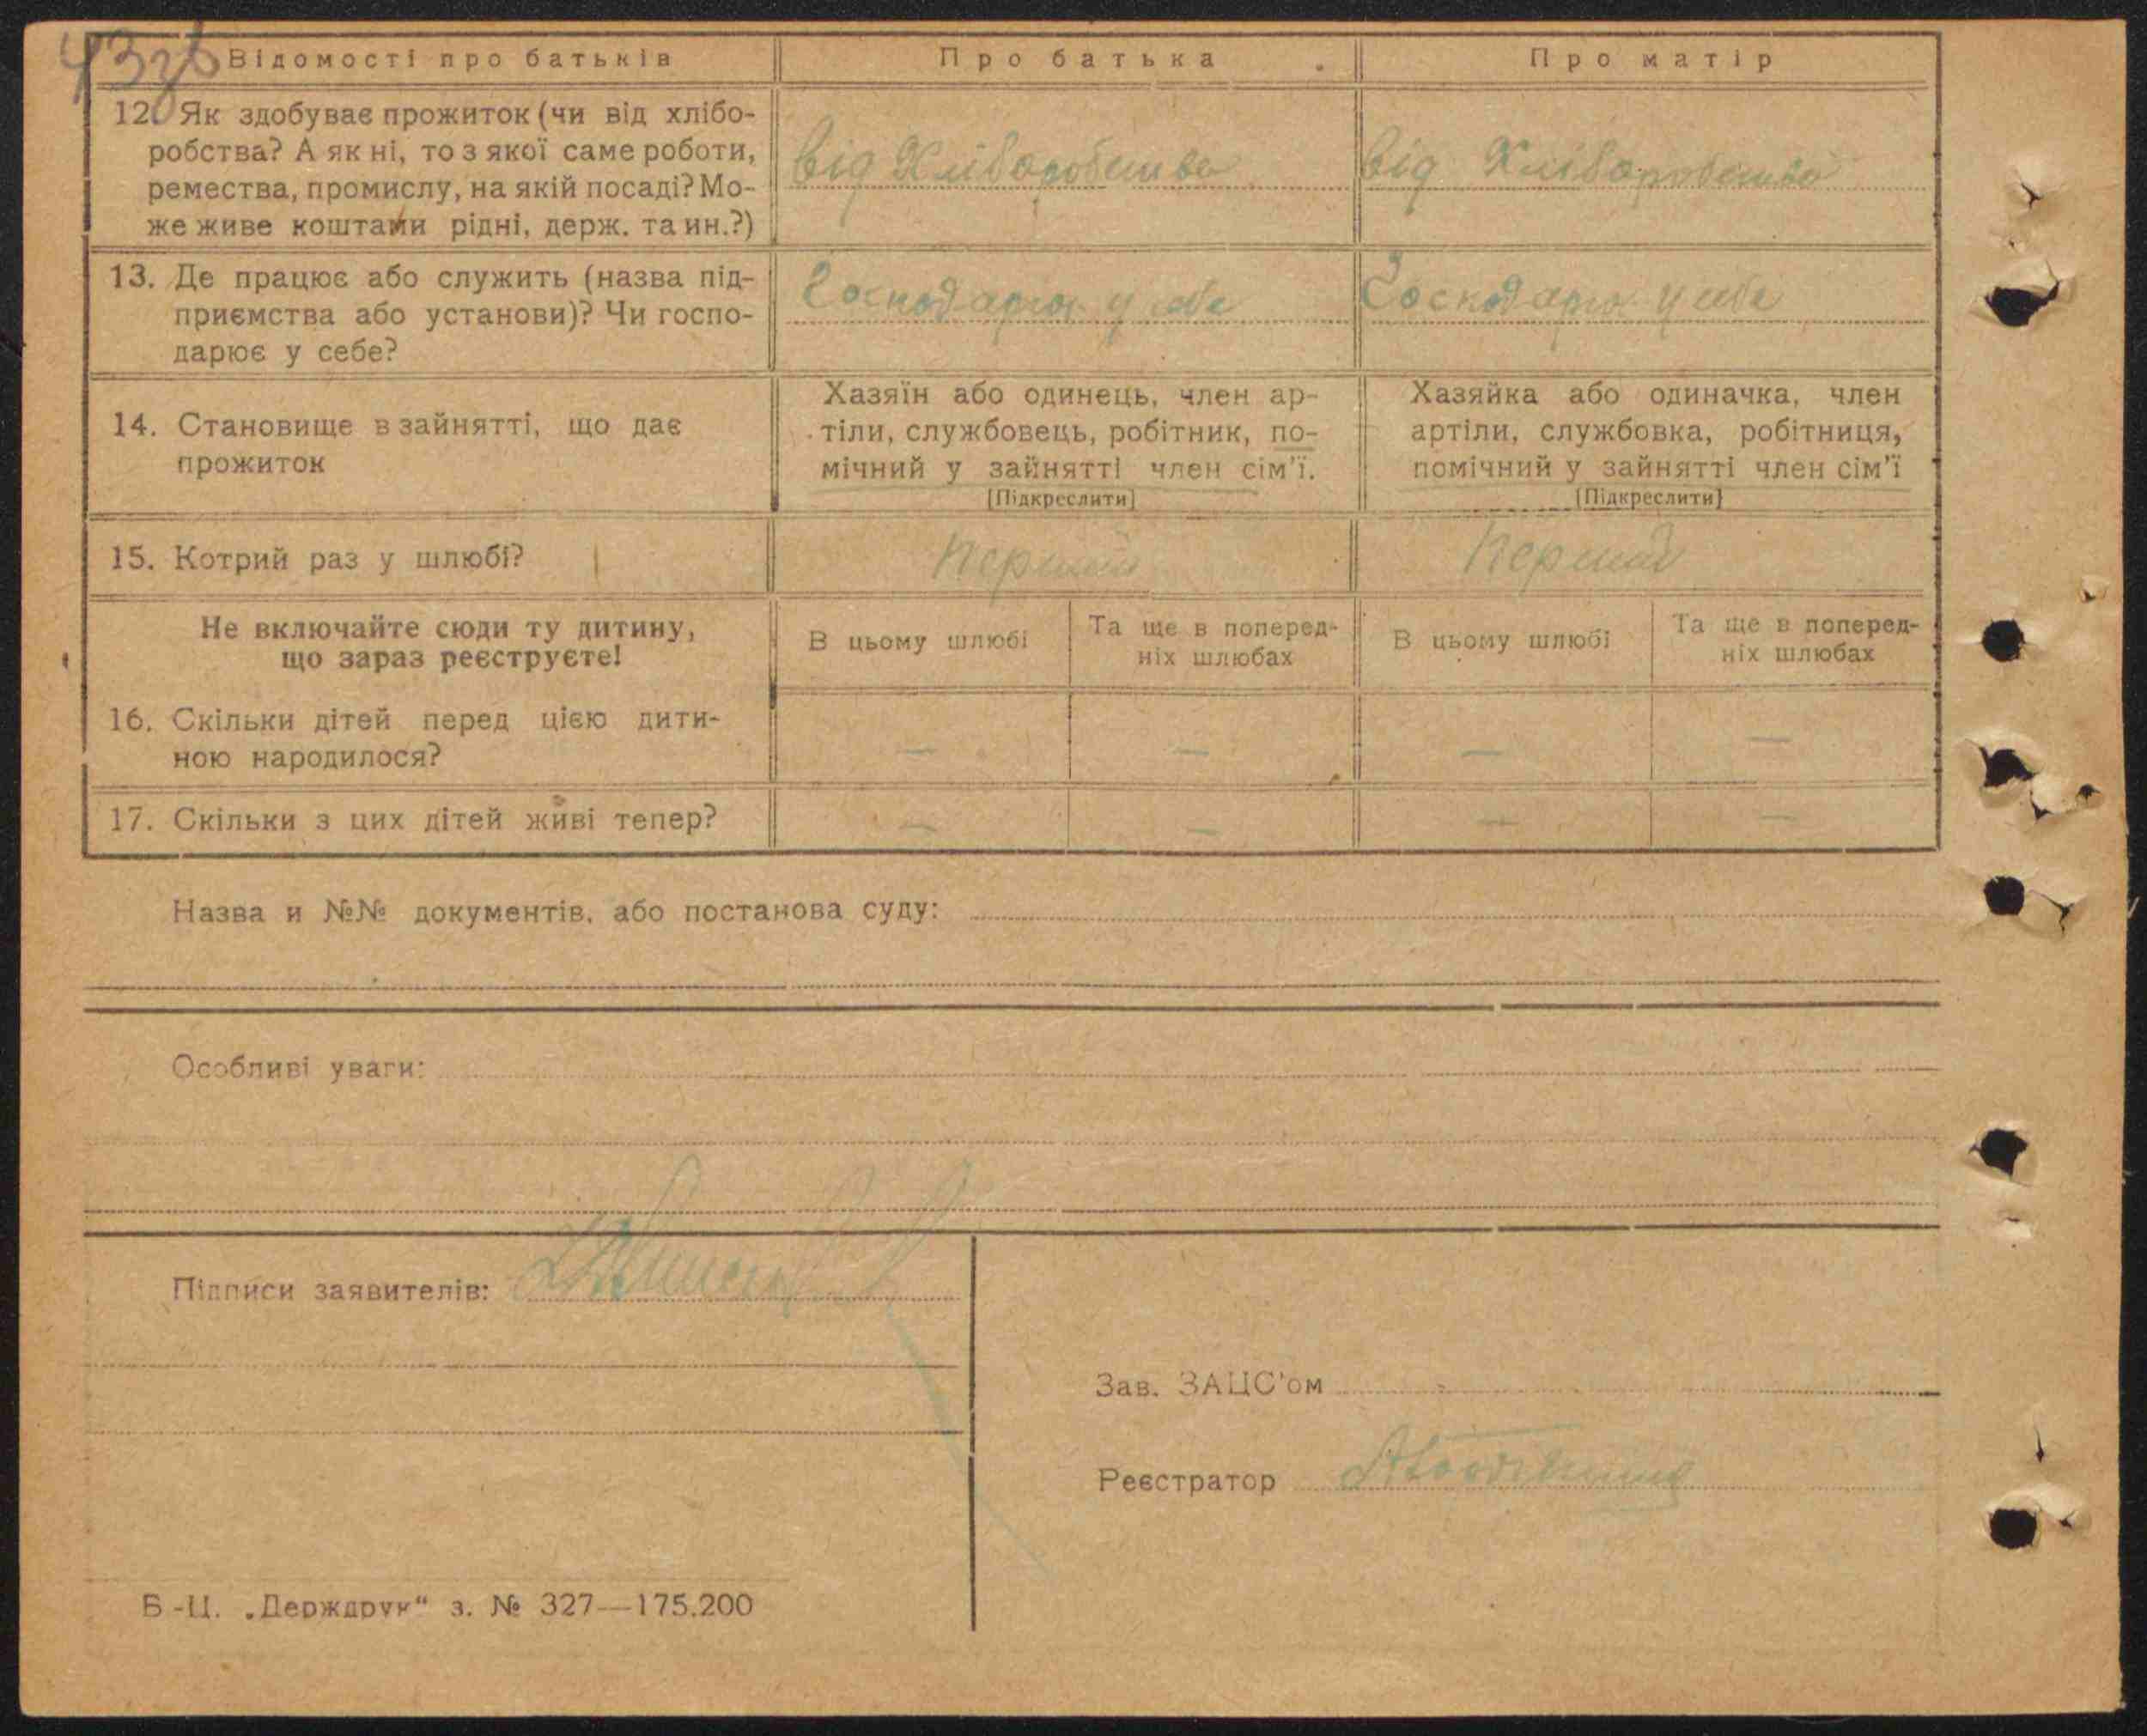 43зв
Відомості про батьків
Про батька
Про матір
12. Як здобуває прожиток (чи від хлібо-
робства? А як ні, то з якої саме роботи,
ремества, промислу, на якій посаді? Мо-
же живе коштами рідні, держ. та ин.?)
від Хліборобства
від Хліборобства
13. Де працює або служить (назва під-
приємства або установи)? Чи госпо-
дарює у себе?
Господарює у себе
Господарює у себе
14. Становище в зайнятті, що дає
прожиток
Хазяїн або одинець, член ар-
тіли, службовець, робітник, по-
мічний у зайнятті член сім'ї.
[Підкреслити]
Хазяйка або одиначка, член
артіли, службовка, робітниця,
помічний у зайнятті член сім'ї
[Підкреслити]
15. Котрий раз у шлюбі?
Перший
Перший
Не включайте сюди ту дитину,
що зараз реєструєте!
В цьому шлюбі
Та ще в поперед-
ніх шлюбах
В цьому шлюбі
Та ще в поперед-
ніх шлюбах
16. Скільки дітей перед цією дити-
ною народилося?
— — — —
17. Скільки з цих дітей живі тепер?
— — — —
Назва и №№ документів, або постанова суду:
Особливі уваги:
Підписи заявителів:
Зав. ЗАЦС'ом
Реєстратор
Б-Ц. „Держдрук“ з. № 327—175.200